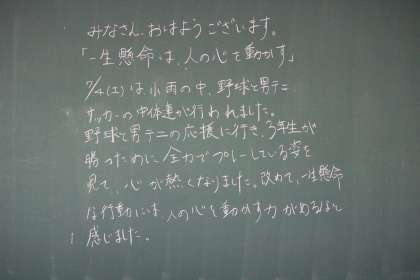 みなさん、おはようございます。
「一生懸命は、人の心を動かす」
7/4(土)は小雨の中、野球と男テニ
サッカーの中体連が行われました。
野球と男テニの応援に行き、3年生が
勝つために全力でプレーしている姿を
見て、心が熱くなりました。改めて、一生懸命
な行動には、人の心を動かす力があるなと
感じました。